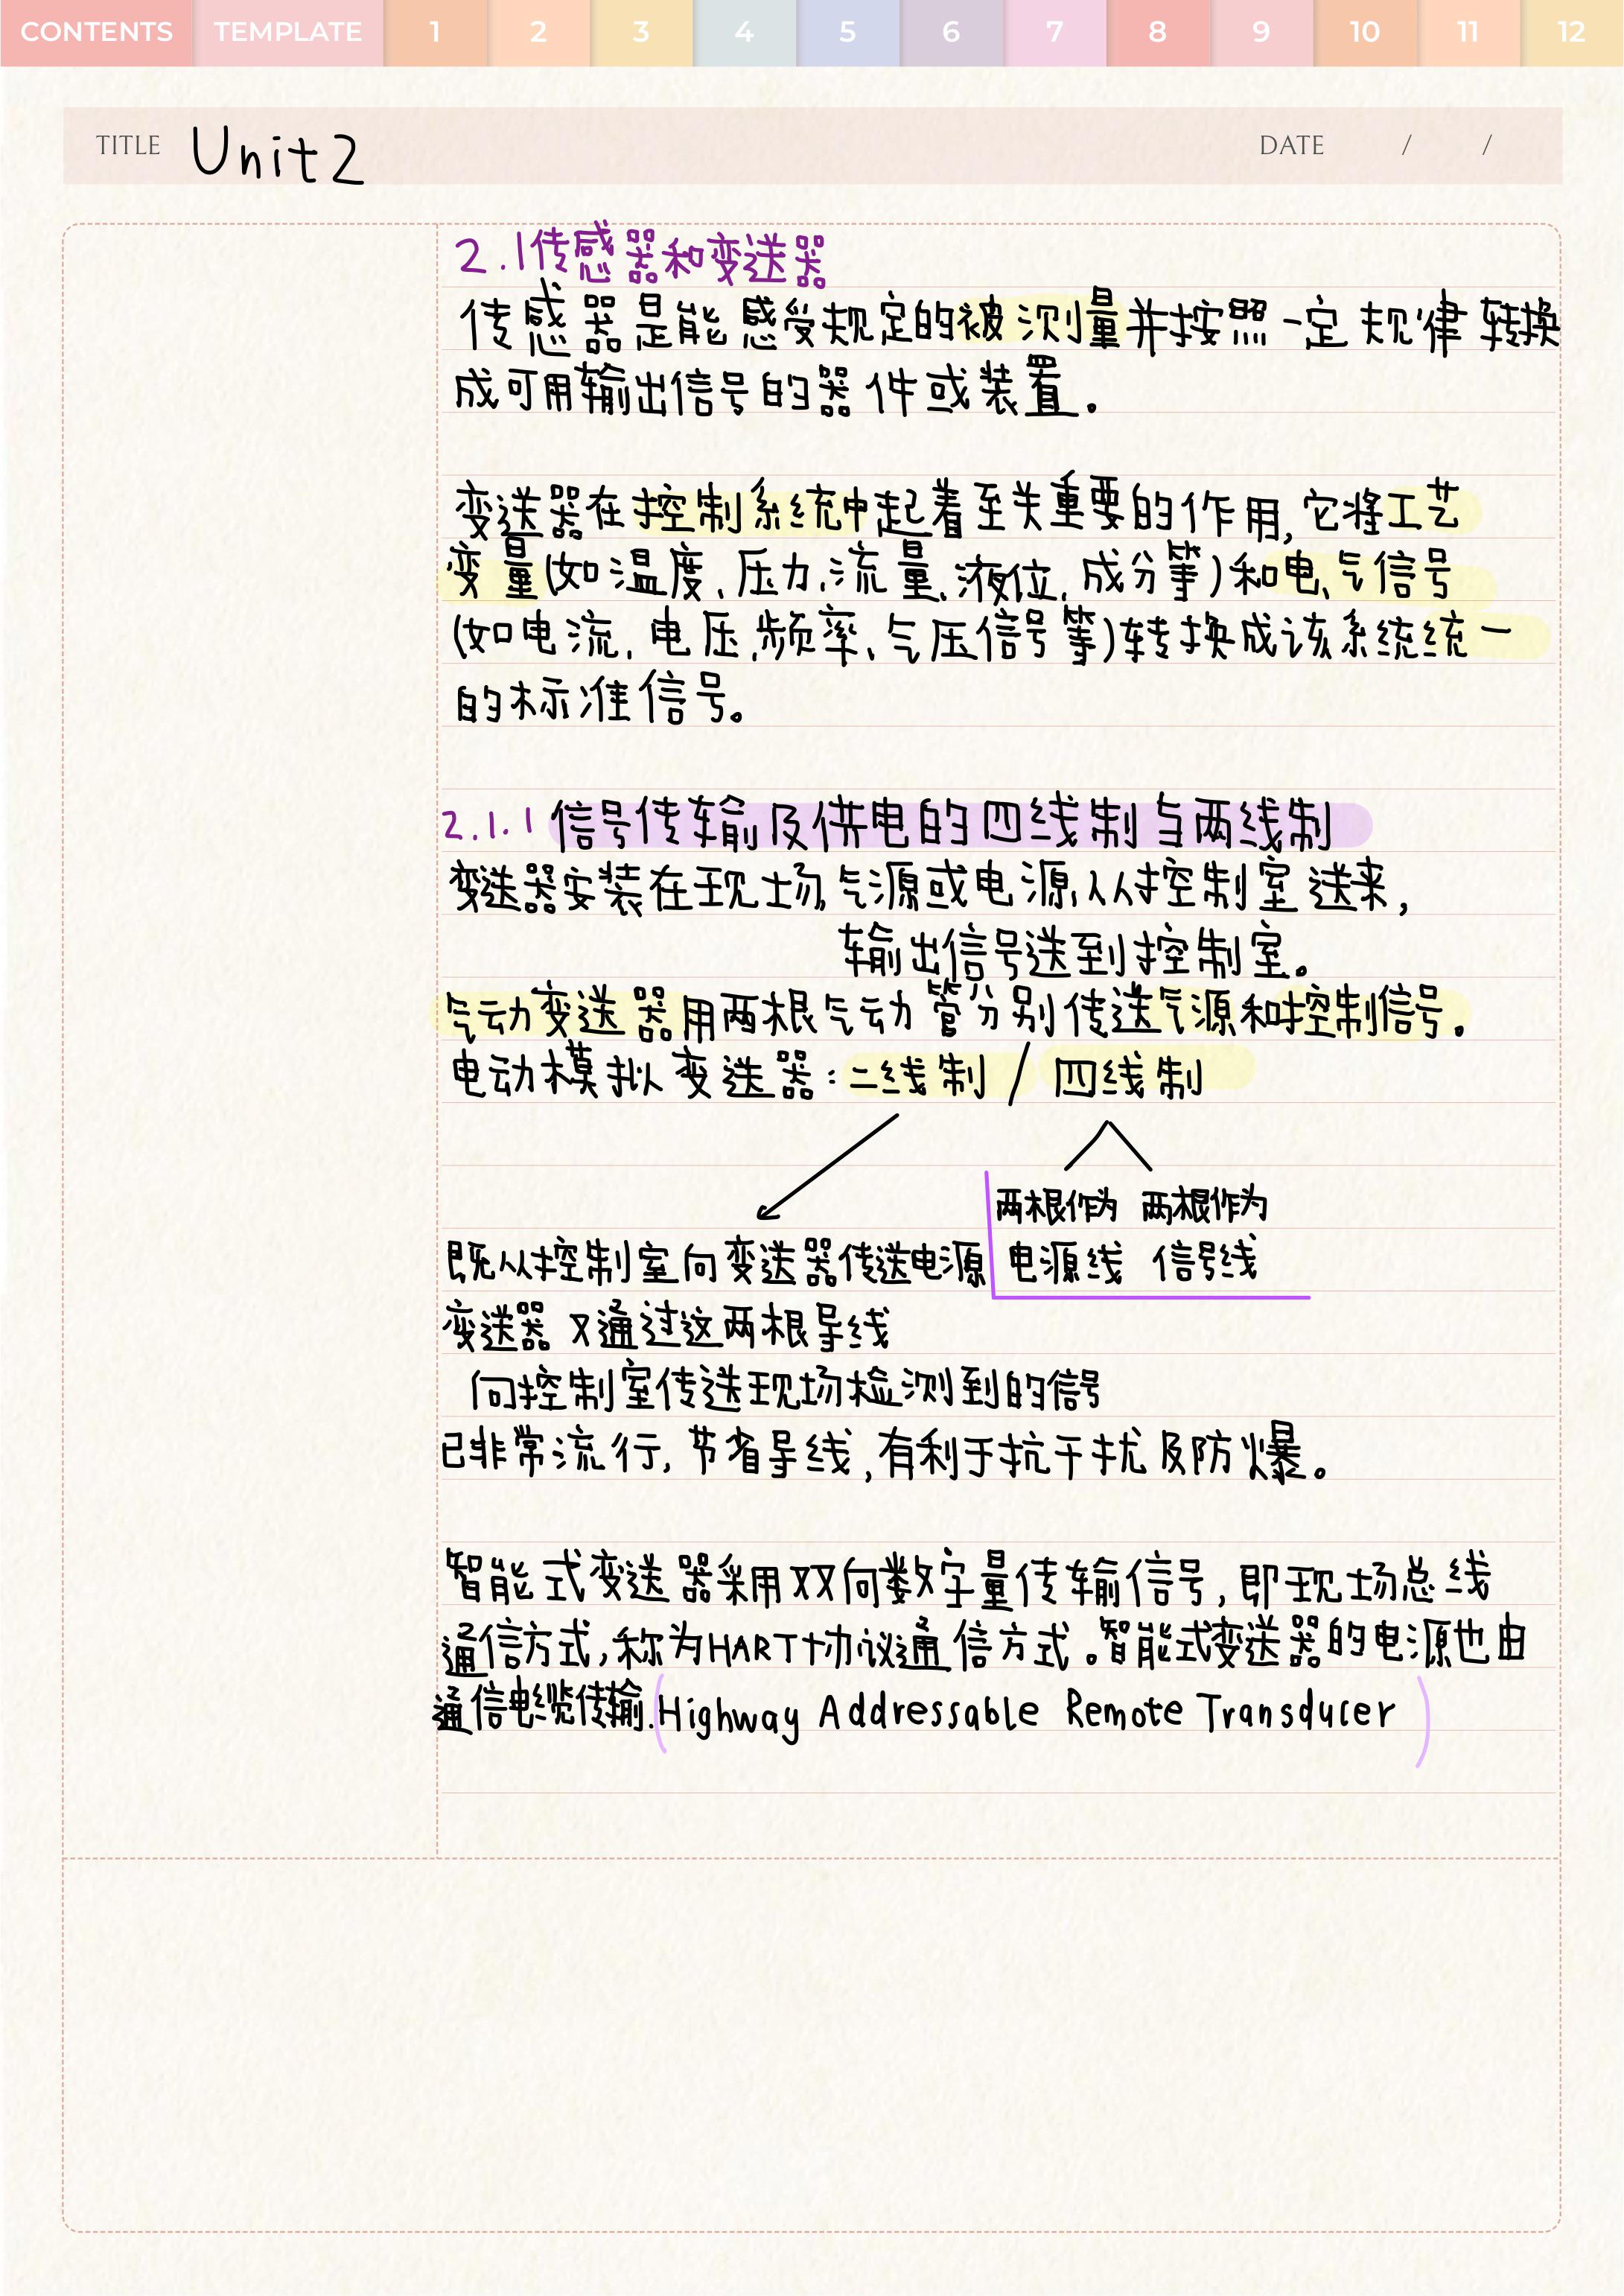 CONTENTS TEMPLATE 1 2 3 4 5 6 7 8 9 10 11 12
TITLE Unit2 DATE / /
2.1传感器和变送器
传感器是能感受规定的被测量并按照一定规律转换
成可用输出信号的器件或装置。
变送器在控制系统中起着至关重要的作用,它将工艺
变量(如温度、压力、流量、液位、成分等)和电、气信号
(如电流、电压、频率、气压信号等)转换成该系统统一
的标准信号。
2.1.1信号传输及供电的四线制与两线制
变送器安装在现场,气源或电源从控制室送来,
输出信号送到控制室。
气动变送器用两根气动管分别传送气源和控制信号。
电动模拟变送器:二线制/四线制
两根作为 两根作为
电源线 信号线
既从控制室向变送器传送电源
变送器又通过这两根导线
向控制室传送现场检测到的信号
已非常流行,节省导线,有利于抗干扰及防爆。
智能式变送器采用双向数字量传输信号,即现场总线
通信方式,称为HART协议通信方式。智能式变送器的电源也由
通信电缆传输.(Highway Addressable Remote Transducer)